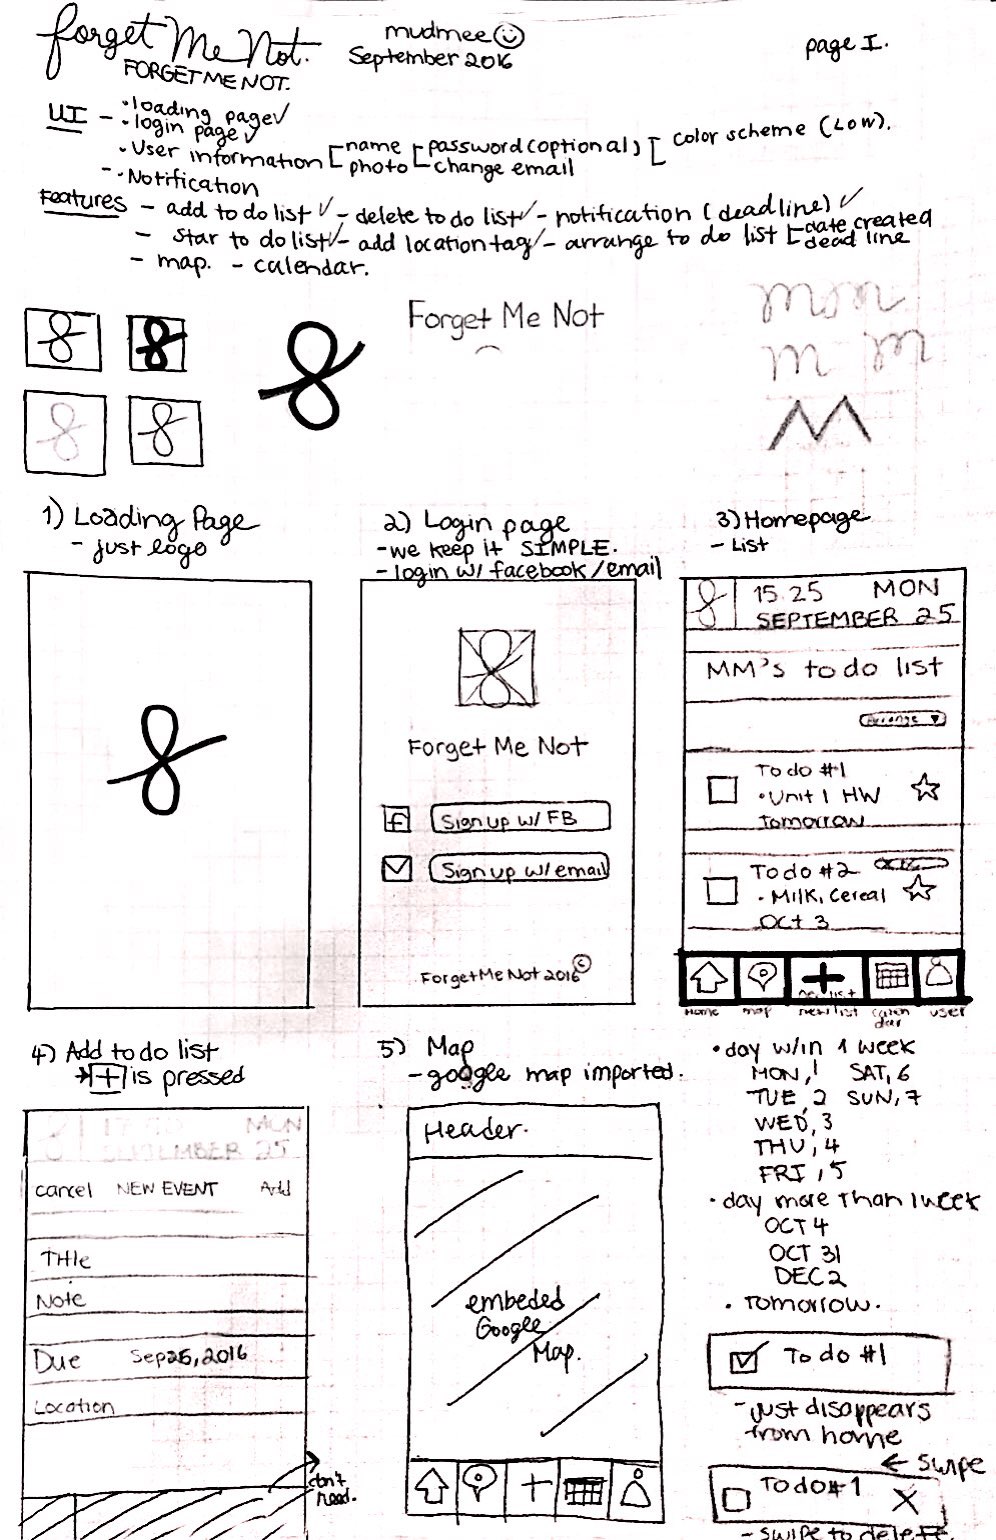 forget Me Not.
FORGET ME NOT.
mudmee
September 2016
page I.
UI - • loading page ✓
• login page ✓
• User information [ name [ password (optional) [ color scheme (Low).
photo change email
- • Notification
Features - add to do list ✓ - delete to do list ✓ - notification (deadline) ✓
- star to do list ✓ - add location tag ✓ - arrange to do list [ date created
dead line
- map. - calendar.
Forget Me Not
1) Loading Page
- just logo
2) Login page
- we keep it SIMPLE.
- login w/ facebook/email
Forget Me Not
f Sign up w/ FB
Sign up w/ email
Forget Me Not 2016 ©
3) Homepage
- List
15 25 MON
SEPTEMBER 25
MM's to do list
Arrange ▼
To do #1
• Unit 1 HW
Tomorrow
To do #2
• Milk, Cereal
Oct 3
Home map new list calen dar user
4) Add to do list
→ + is pressed
MON
SEPTEMBER 25
cancel NEW EVENT Add
Title
Note
Due Sep 25, 2016
Location
don't need.
5) Map
- google map imported.
Header.
embeded
Google
Map.
• day w/in 1 week
MON, 1 SAT, 6
TUE, 2 SUN, 7
WED, 3
THU, 4
FRI, 5
• day more than 1 week
OCT 4
OCT 31
DEC 2
• Tomorrow.
To do #1
- just disappears
from home
← swipe
To do #1 X
- swipe to delete.